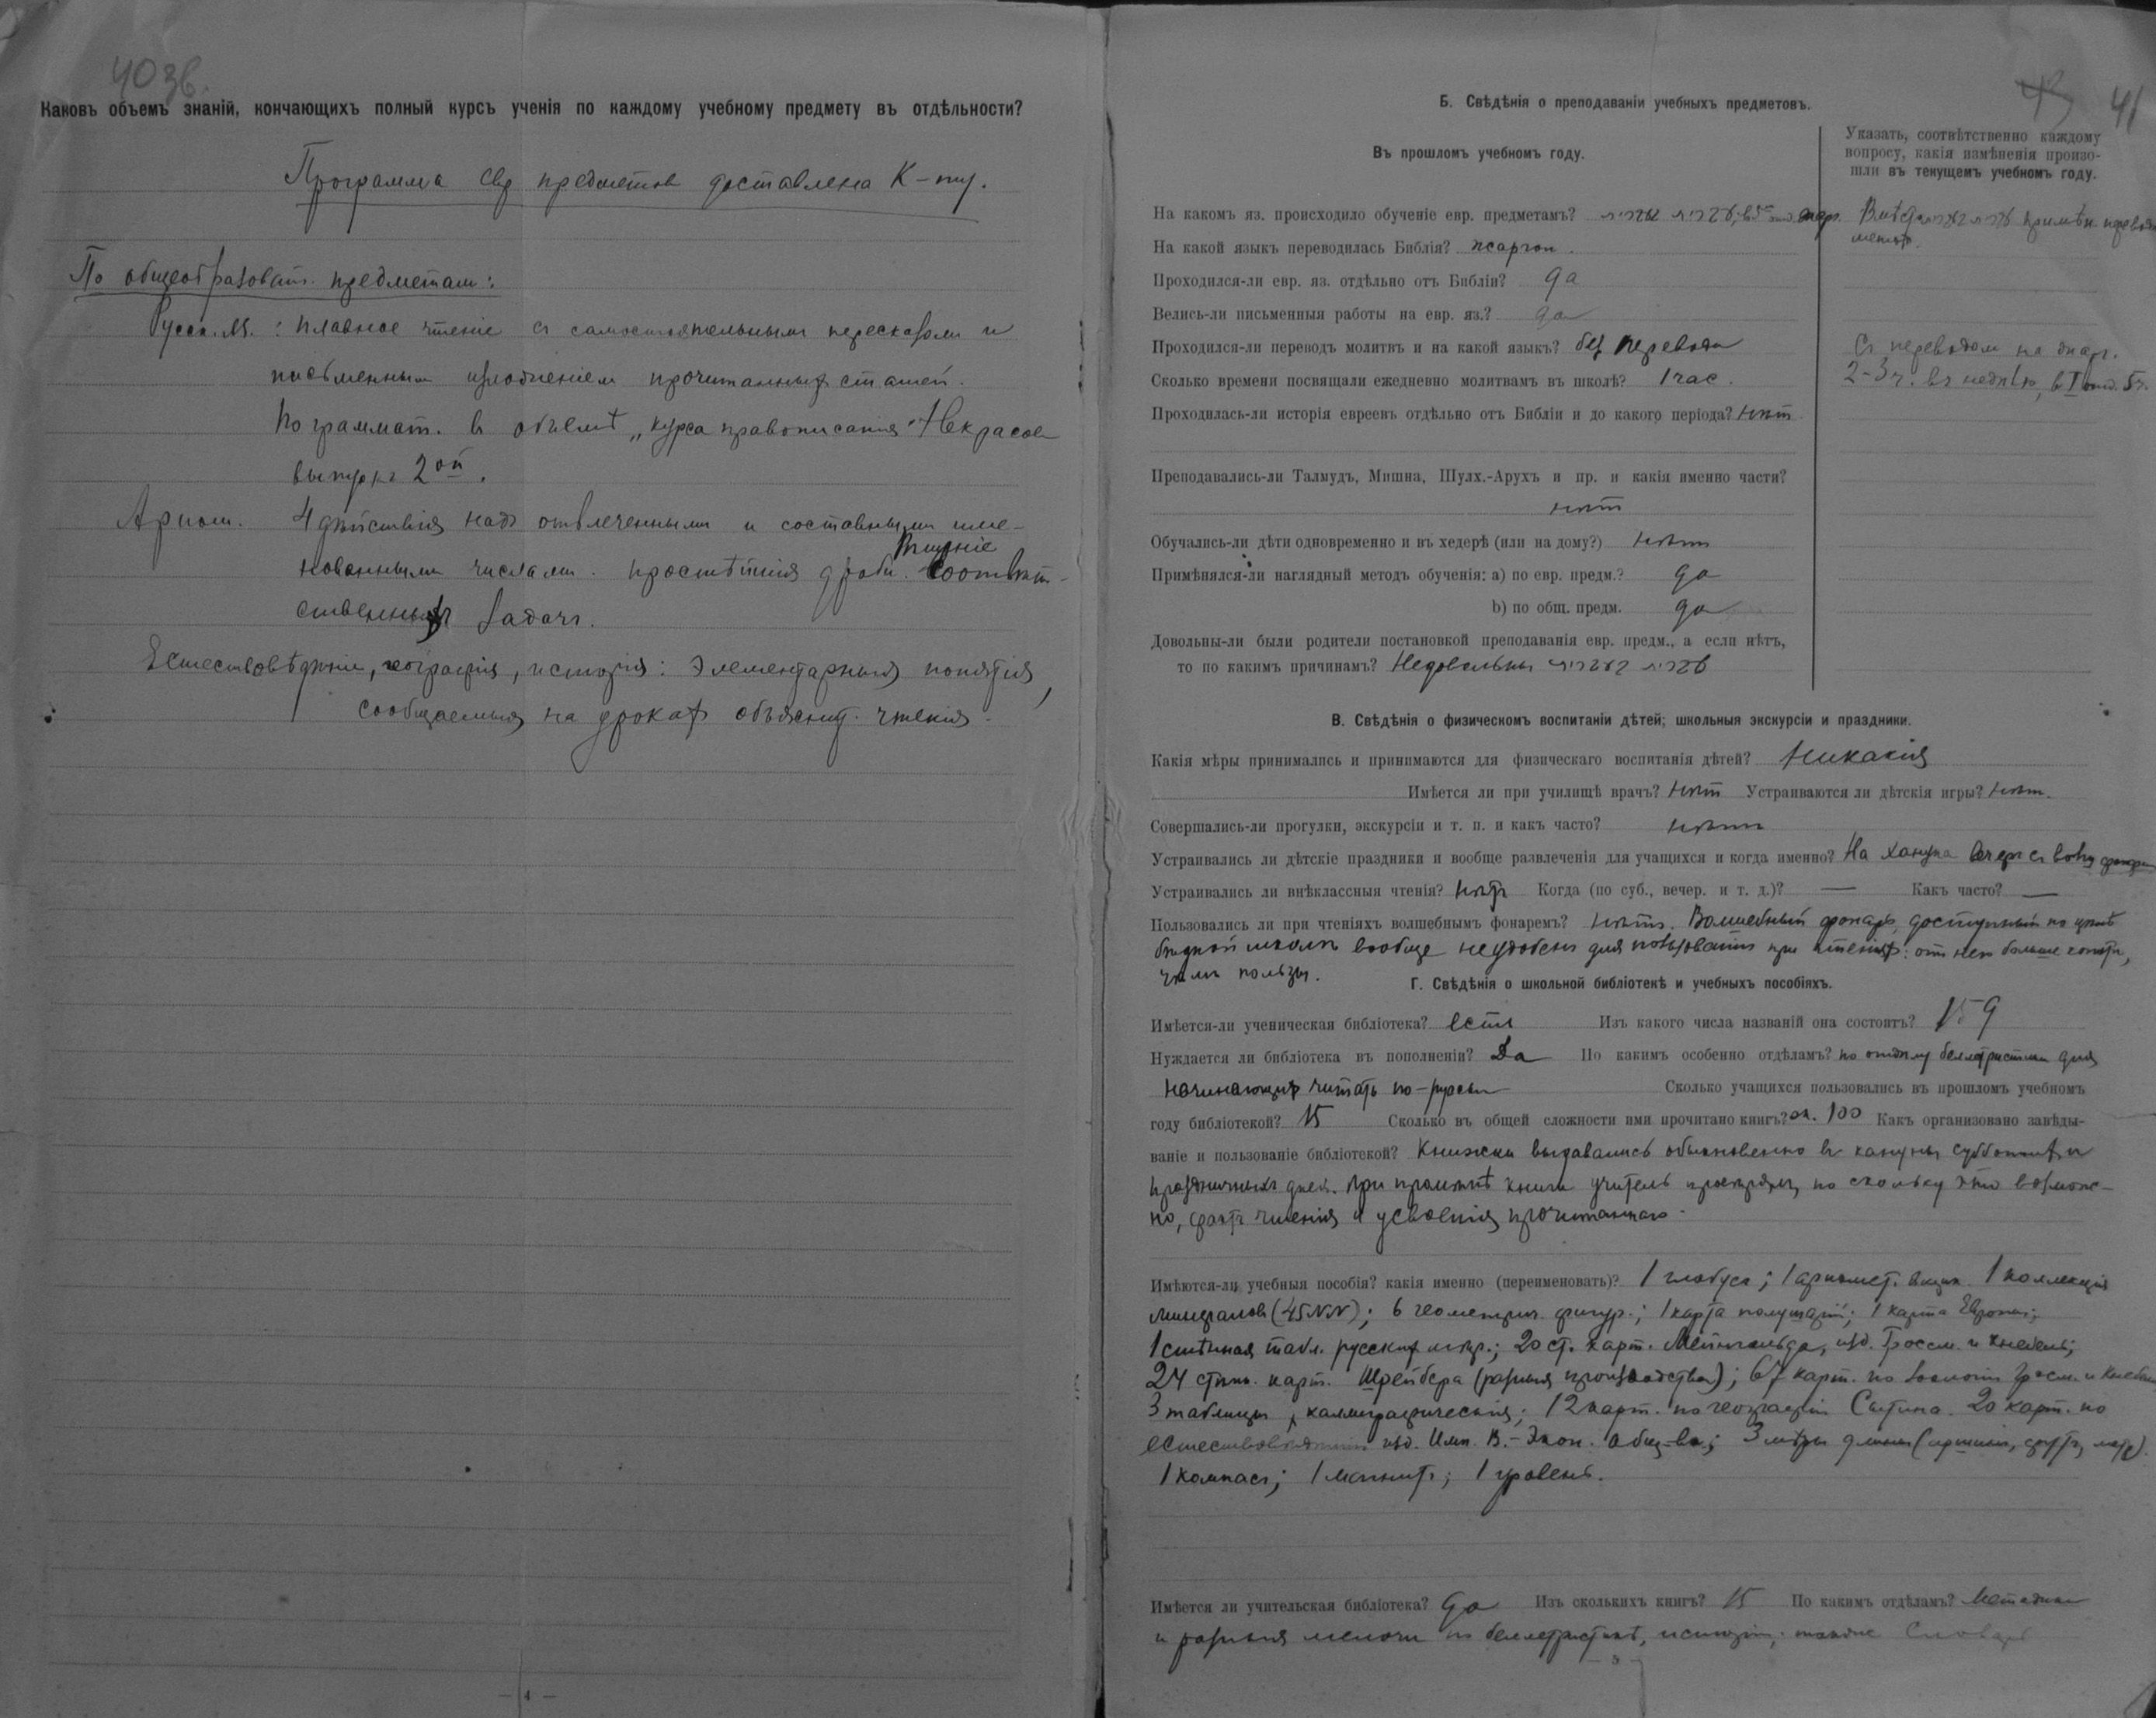 40 зв.
Каковъ объемъ знаній, кончающихъ полный курсъ ученія по каждому учебному предмету въ отдѣльности?
Программа евр предметов доставлена К-ту.
По общеобразоват. предметам:
Русск. яз.: плавное чтеніе съ самостоятельным пересказом и
письменным изложеніем прочитанных статей.
По граммат. в объемѣ „курса правописания" Некрасова
выпускъ 2ой.
Арифм. 4 дѣйствія надъ отвлеченными и составными име-
нованными числами. простѣйшія дроби. Рѣшеніе соотвѣт-
ственныхъ задачъ.
Естествовѣдѣніе, географія, исторія: Элементарныя понятія,
сообщаемыя на уроках объяснит. чтенія.
— 4 —
41
Б. Свѣдѣнія о преподаваніи учебныхъ предметовъ.
Въ прошломъ учебномъ году.
Указать, соотвѣтственно каждому
вопросу, какія измѣненія произо-
шли въ текущемъ учебномъ году.
На какомъ яз. происходило обученіе евр. предметамъ? עברית בעברית
Вмѣсто עברית בעברית примѣн. перевод.
метод.
На какой языкъ переводилась Библія? жаргон.
Проходился-ли евр. яз. отдѣльно отъ Библіи? да
Велись-ли письменныя работы на евр. яз.? да
Проходился-ли переводъ молитвъ и на какой языкъ? без перевода
Съ переводом на жарг.
Сколько времени посвящали ежедневно молитвамъ въ школѣ? 1 час.
2-3 ч. въ недѣлю, в I отд. 5 ч.
Проходилась-ли исторія евреевъ отдѣльно отъ Библіи и до какого періода? нѣт
Преподавались-ли Талмудъ, Мишна, Шулх.-Арухъ и пр. и какія именно части?
нѣт
Обучались-ли дѣти одновременно и въ хедерѣ (или на дому?) нѣт
Примѣнялся-ли наглядный методъ обученія: а) по евр. предм.? да
b) по общ. предм. да
Довольны-ли были родители постановкой преподаванія евр. предм., а если нѣтъ,
то по какимъ причинамъ? Недовольны עברית בעברית
В. Свѣдѣнія о физическомъ воспитаніи дѣтей; школьныя экскурсіи и праздники.
Какія мѣры принимались и принимаются для физическаго воспитанія дѣтей? Никакія
Имѣется ли при училищѣ врачъ? нѣт Устраиваются ли дѣтскія игры? нѣт.
Совершались-ли прогулки, экскурсіи и т. п. и какъ часто? нѣт
Устраивались ли дѣтскіе праздники и вообще развлеченія для учащихся и когда именно? На ханука вечеръ съ волш фонарем
Устраивались ли внѣклассныя чтенія? нѣтъ Когда (по суб., вечер. и т. д.)? — Какъ часто? —
Пользовались ли при чтеніяхъ волшебнымъ фонаремъ? нѣтъ. Волшебный фонарь, доступный по цѣнѣ
бѣдной школѣ вообще неудобен для пользованія при чтеніях: от него больше копоти,
чѣм пользы.
Г. Свѣдѣнія о школьной библіотекѣ и учебныхъ пособіяхъ.
Имѣется-ли ученическая библіотека? есть Изъ какого числа названій она состоитъ? 159
Нуждается ли библіотека въ пополненіи? Да По какимъ особенно отдѣламъ? по отдѣлу беллетристики для
начинающих читать по-русски Сколько учащихся пользовались въ прошломъ учебномъ
году библіотекой? 15 Сколько въ общей сложности ими прочитано книгъ? ок. 100 Какъ организовано завѣды-
ваніе и пользованіе библіотекой? Книжки выдавались обыкновенно въ кануны субботних и
праздничныхъ дней. При промѣнѣ книги учитель провѣрялъ, по скольку это возмож-
но, фактъ чтенія и усвоенія прочитаннаго.
Имѣются-ли, учебныя пособія? какія именно (переименовать)? 1 глобусъ; 1 арифмет. ящик. 1 коллекція
минералов (45 NN); 6 геометрич. фигур.; 1 карта полушарій; 1 карта Европы;
1 стѣнная табл. русских мѣр; 20 ст. карт. Мейнгольда, изд. Гроссм. и Кнебель;
24 стѣн. карт. Шрейбера (разныя производства); 67 карт. по зоологіи Гросм. и Кнебель
3 таблицы каллиграфическія; 12 карт. по географіи Сытина. 20 карт. по
естествовѣдѣнію изд. Имп. В.-Экон. общ-ва; 3 мѣры длины (аршин, футъ, метр).
1 компасъ; 1 магнитъ; 1 уровень.
Имѣется ли учительская библіотека? да Изъ сколькихъ книгъ? 15 По какимъ отдѣламъ? Методики
и разныя мелочи по беллетристикѣ, исторіи; также словарь
— 5 —